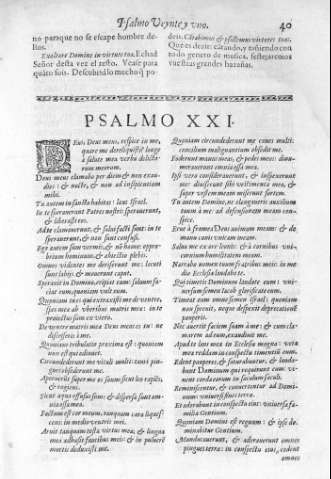 Psalmo Veynte y vno.
40
no parque no se escape hombre de-
llos.
Exaltare Domine in virtute tua. Echad
Señor desta vez el resto. Vease para
quāto sois. Descubrid lo mucho q̄ po-
deis. Cantabimus & psallemus virtutes tuas.
Que es dezir: Cātando, y tañiendo con
todo genero de musica, festejaremos
vuestras grandes hazañas.
PSALMO XXI.
DEus, Deus meus, respice in me,
quare me dereliquisti? longè
à salute mea verba delicto-
rum meorum.
Deus meus clamabo per diem, & non exau-
dies: & nocte, & non ad insipientiam
mihi.
Tu autem in sancto habitas: laus Israel.
In te sperauerunt Patres nostri: sperauerunt,
& liberasti eos.
Ad te clamauerunt, & salui facti sunt: in te
sperauerunt, & non sunt confusi.
Ego autem sum vermis, & nō homo: oppro-
brium hominum, & abiectio plebis.
Omnes videntes me deriserunt me: locuti
sunt labijs, & mouerunt caput.
Sperauit in Domino, eripiat eum: saluum fa-
ciat eum, quoniam vult eum.
Quoniam tu es qui extraxisti me de ventre,
spes mea ab vberibus matris meæ: in te
proiectus sum ex vtero.
De ventre matris meæ Deus meus es tu: ne
discesseris à me.
Quoniam tribulatio proxima est: quoniam
non est qui adiuuet.
Circundederunt me vituli multi: tauri pin-
gues obsederunt me.
Aperuerunt super me os suum: sicut leo rapiēs,
& rugiens.
Sicut aqua effusus sum: & dispersa sunt om-
nia ossa mea.
Factum est cor meum, tanquam cera liques-
cens: in medio ventris mei.
Aruit tanquam testa virtus mea, & lingua
mea adhæsit faucibus meis: & in puluerē
mortis deduxisti me.
Quoniam circundederunt me canes multi:
concilium malignantium obsedit me.
Foderunt manus meas, & pedes meos: dinu-
merauerunt omnia ossa mea.
Ipsi verò considerauerunt, & inspexerunt
me: diuiserunt sibi vestimenta mea, &
super vestem meam miserunt sortem.
Tu autem Domine, ne elongaueris auxilium
tuum à me: ad defensionem meam cons-
pice.
Erue à framea Deus animam meam: & de
manu canis vnicam meam.
Salua me ex ore leonis: & à cornibus vni-
cornium humilitatem meam.
Narrabo nomen tuum fratribus meis: in me-
dio Ecclesiæ laudabo te.
Qui timetis Dominum laudate eum: vni-
uersum semen Iacob glorificate eum.
Timeat eum omne semen Israel: quoniam
non spreuit, neque despexit deprecationē
pauperis.
Nec auertit faciem suam à me: & cum cla-
marem ad eum, exaudiuit me.
Apud te laus mea in Ecclesia magna: vota
mea reddam in conspectu timentium eum.
Edent pauperes, & saturabuntur, & lauda-
bunt Dominum qui requirunt eum: vi-
uent corda eorum in sæculum sæculi.
Reminiscentur, & conuertentur ad Domi-
num: vniuersi fines terræ.
Et adorabunt in conspectu eius: vniuersa fa-
milia Gentium.
Quoniam Domini est regnum: & ipse do-
minabitur Gentium.
Manducauerunt, & adorauerunt omnes
pingues terræ: in conspectu eius, cadent
omnes